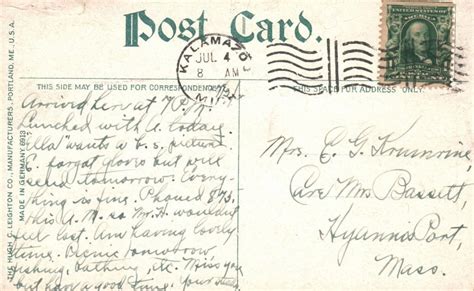 Post Card.
KALAMAZOO
JUL 4
8 AM
MI
THIS SIDE MAY BE USED FOR CORRESPONDENCE
THIS SPACE FOR ADDRESS
THE HUGH C. LEIGHTON CO., MANUFACTURERS, PORTLAND, ME., U.S.A.
MADE IN GERMANY
Arrived here at 7 P.M.
Lunched with A. today
Ella wants a picture
E. forgot yours but will
send tomorrow. Every-
thing is fine. Phoned 873
this A.M. so Mr. H. wouldn't
feel lost. Am having lovely
time. Picnic tomorrow
fishing, bathing, etc. Miss you
but have a good time. Your
Mrs. C. G.
Care Mrs Bassett,
Hyannis Port,
Mass.